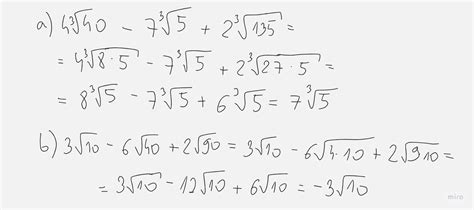 a) 4∛40 - 7∛5 + 2∛135 =
= 4∛8·5 - 7∛5 + 2∛27·5 =
= 8∛5 - 7∛5 + 6∛5 = 7∛5
b) 3√10 - 6√40 + 2√90 = 3√10 - 6√4·10 + 2√9·10 =
= 3√10 - 12√10 + 6√10 = -3√10
miro